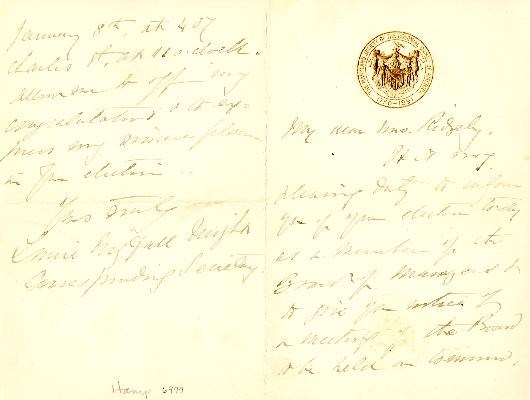 My dear Mrs. Ridgely.
It is my
pleasing duty to inform
you of your election today
as a member of the
Board of Managers &
to give you notice of
a meeting of the Board
to be held on tomorrow,
January 8th, at 407
Charles St. at 11 o'clock.
Allow me to offer my
congratulations & to ex-
press my sincere pleasure
in your election.
Yours truly
Knight
Corresponding Secretary.
Hamp